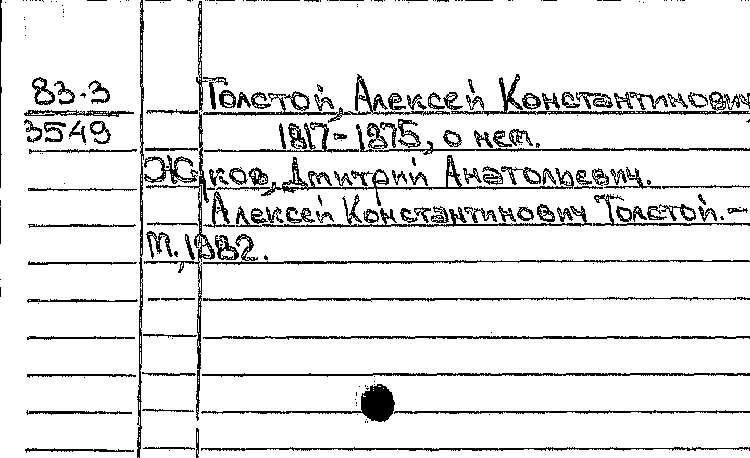 83.3 Толстой, Алексей Константинович,
3549 1817-1875, о нем.
Жуков, Дмитрий Анатольевич.
Алексей Константинович Толстой.–
М., 1982.